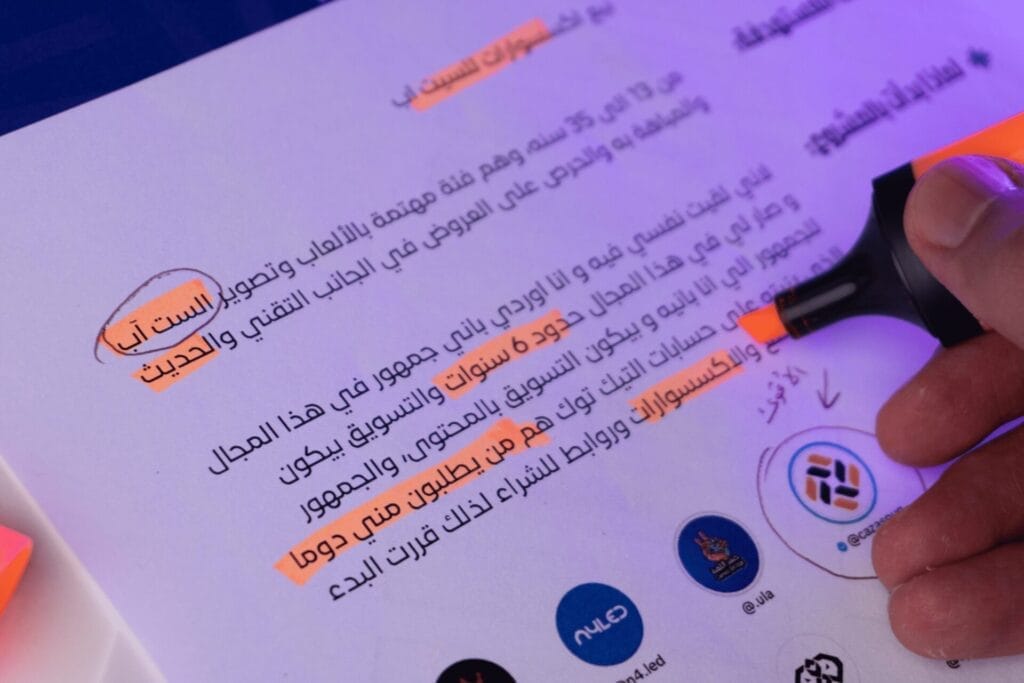 المستهدفة
بيع اكسسوارات للسيت اب
لماذا بدأت بالمشروع
من 13 الى 35 سنه، وهم فئة مهتمة بالألعاب وتصوير الست آب
والمباهاة به والحرص على العروض في الجانب التقني والحديث
فني لقيت نفسي فيه و انا اوردي باني جمهور في هذا المجال
و صار لي في هذا المجال حدود 6 سنوات والتسويق بيكون
للجمهور الي انا بانيه و بيكون التسويق بالمحتوى، والجمهور
الذي بنيته على حسابات التيك توك هم من يطلبون مني دوما
والاكسسوارات وروابط للشراء لذلك قررت البدء
الأقوى
@.ula
NYLED
@n4.led